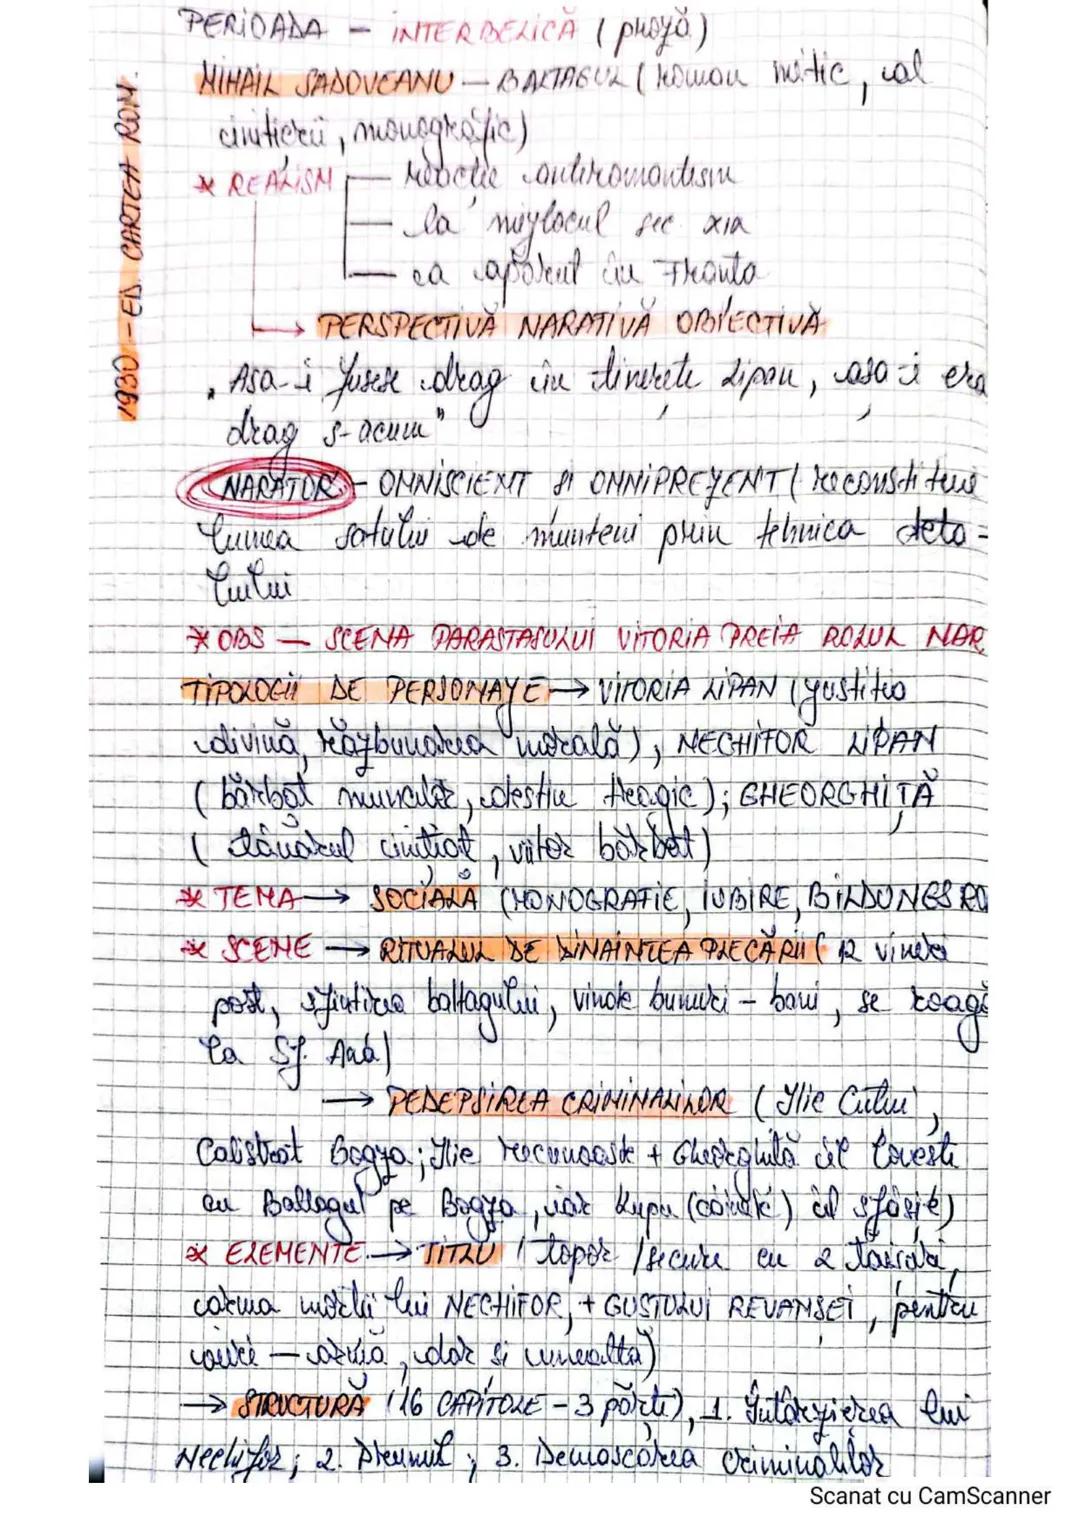 PERIOADA - INTERBELICĂ (proză)
MIHAIL SADOVEANU - BALTAGUL (roman mitic, al
inițierii, monografic)
1930 - ED. CARTEA ROM.
* REALISM - reacție antiromantism
- la mijlocul sec XIX
- ca apărut în Franța
→ PERSPECTIVĂ NARATIVĂ OBIECTIVĂ
„Asa-i fusese drag în tinerețe Lipan, asa-i era
drag s-acum"
NARATOR - OMNISCIENT SI OMNIPREZENT (reconstituie
lumea satului de munteni prin tehnica deta-
liului
* OBS - SCENA PARASTASULUI VITORIA PREIA ROLUL NAR
TIPOLOGII DE PERSONAJE → VITORIA LIPAN (justiția
divină, răzbunarea morală), NECHIFOR LIPAN
(bărbat muncitor, destin tragic); GHEORGHIȚĂ
(tânărul inițiat, viitor bărbat)
* TEMA → SOCIALĂ (MONOGRAFIE, IUBIRE, BILDUNGSRO
* SCENE → RITUALUL DE DINAINTEA PLECĂRII (12 vineri
post, sfințirea baltagului, vinde bunuri - bani, se roagă
la Sf. Ana)
→ PEDEPSIREA CRIMINALILOR (Ilie Cuțui,
Calistrat Bogza; Ilie recunoaste + Gheorghiță îl loveste
cu Baltagul pe Bogza, iar Lupu (câinele) îl sfâșie)
* ELEMENTE → TITLU (topor / secure cu 2 tăișuri,
arma morții lui NECHIFOR, + GUSTULUI REVANSEI, pentru
orice - armă, dar si unealtă)
→ STRUCTURĂ (16 CAPITOLE - 3 părți), 1. Întârzierea lui
Nechifor; 2. Drumul; 3. Demascarea criminalilor
Scanat cu CamScanner